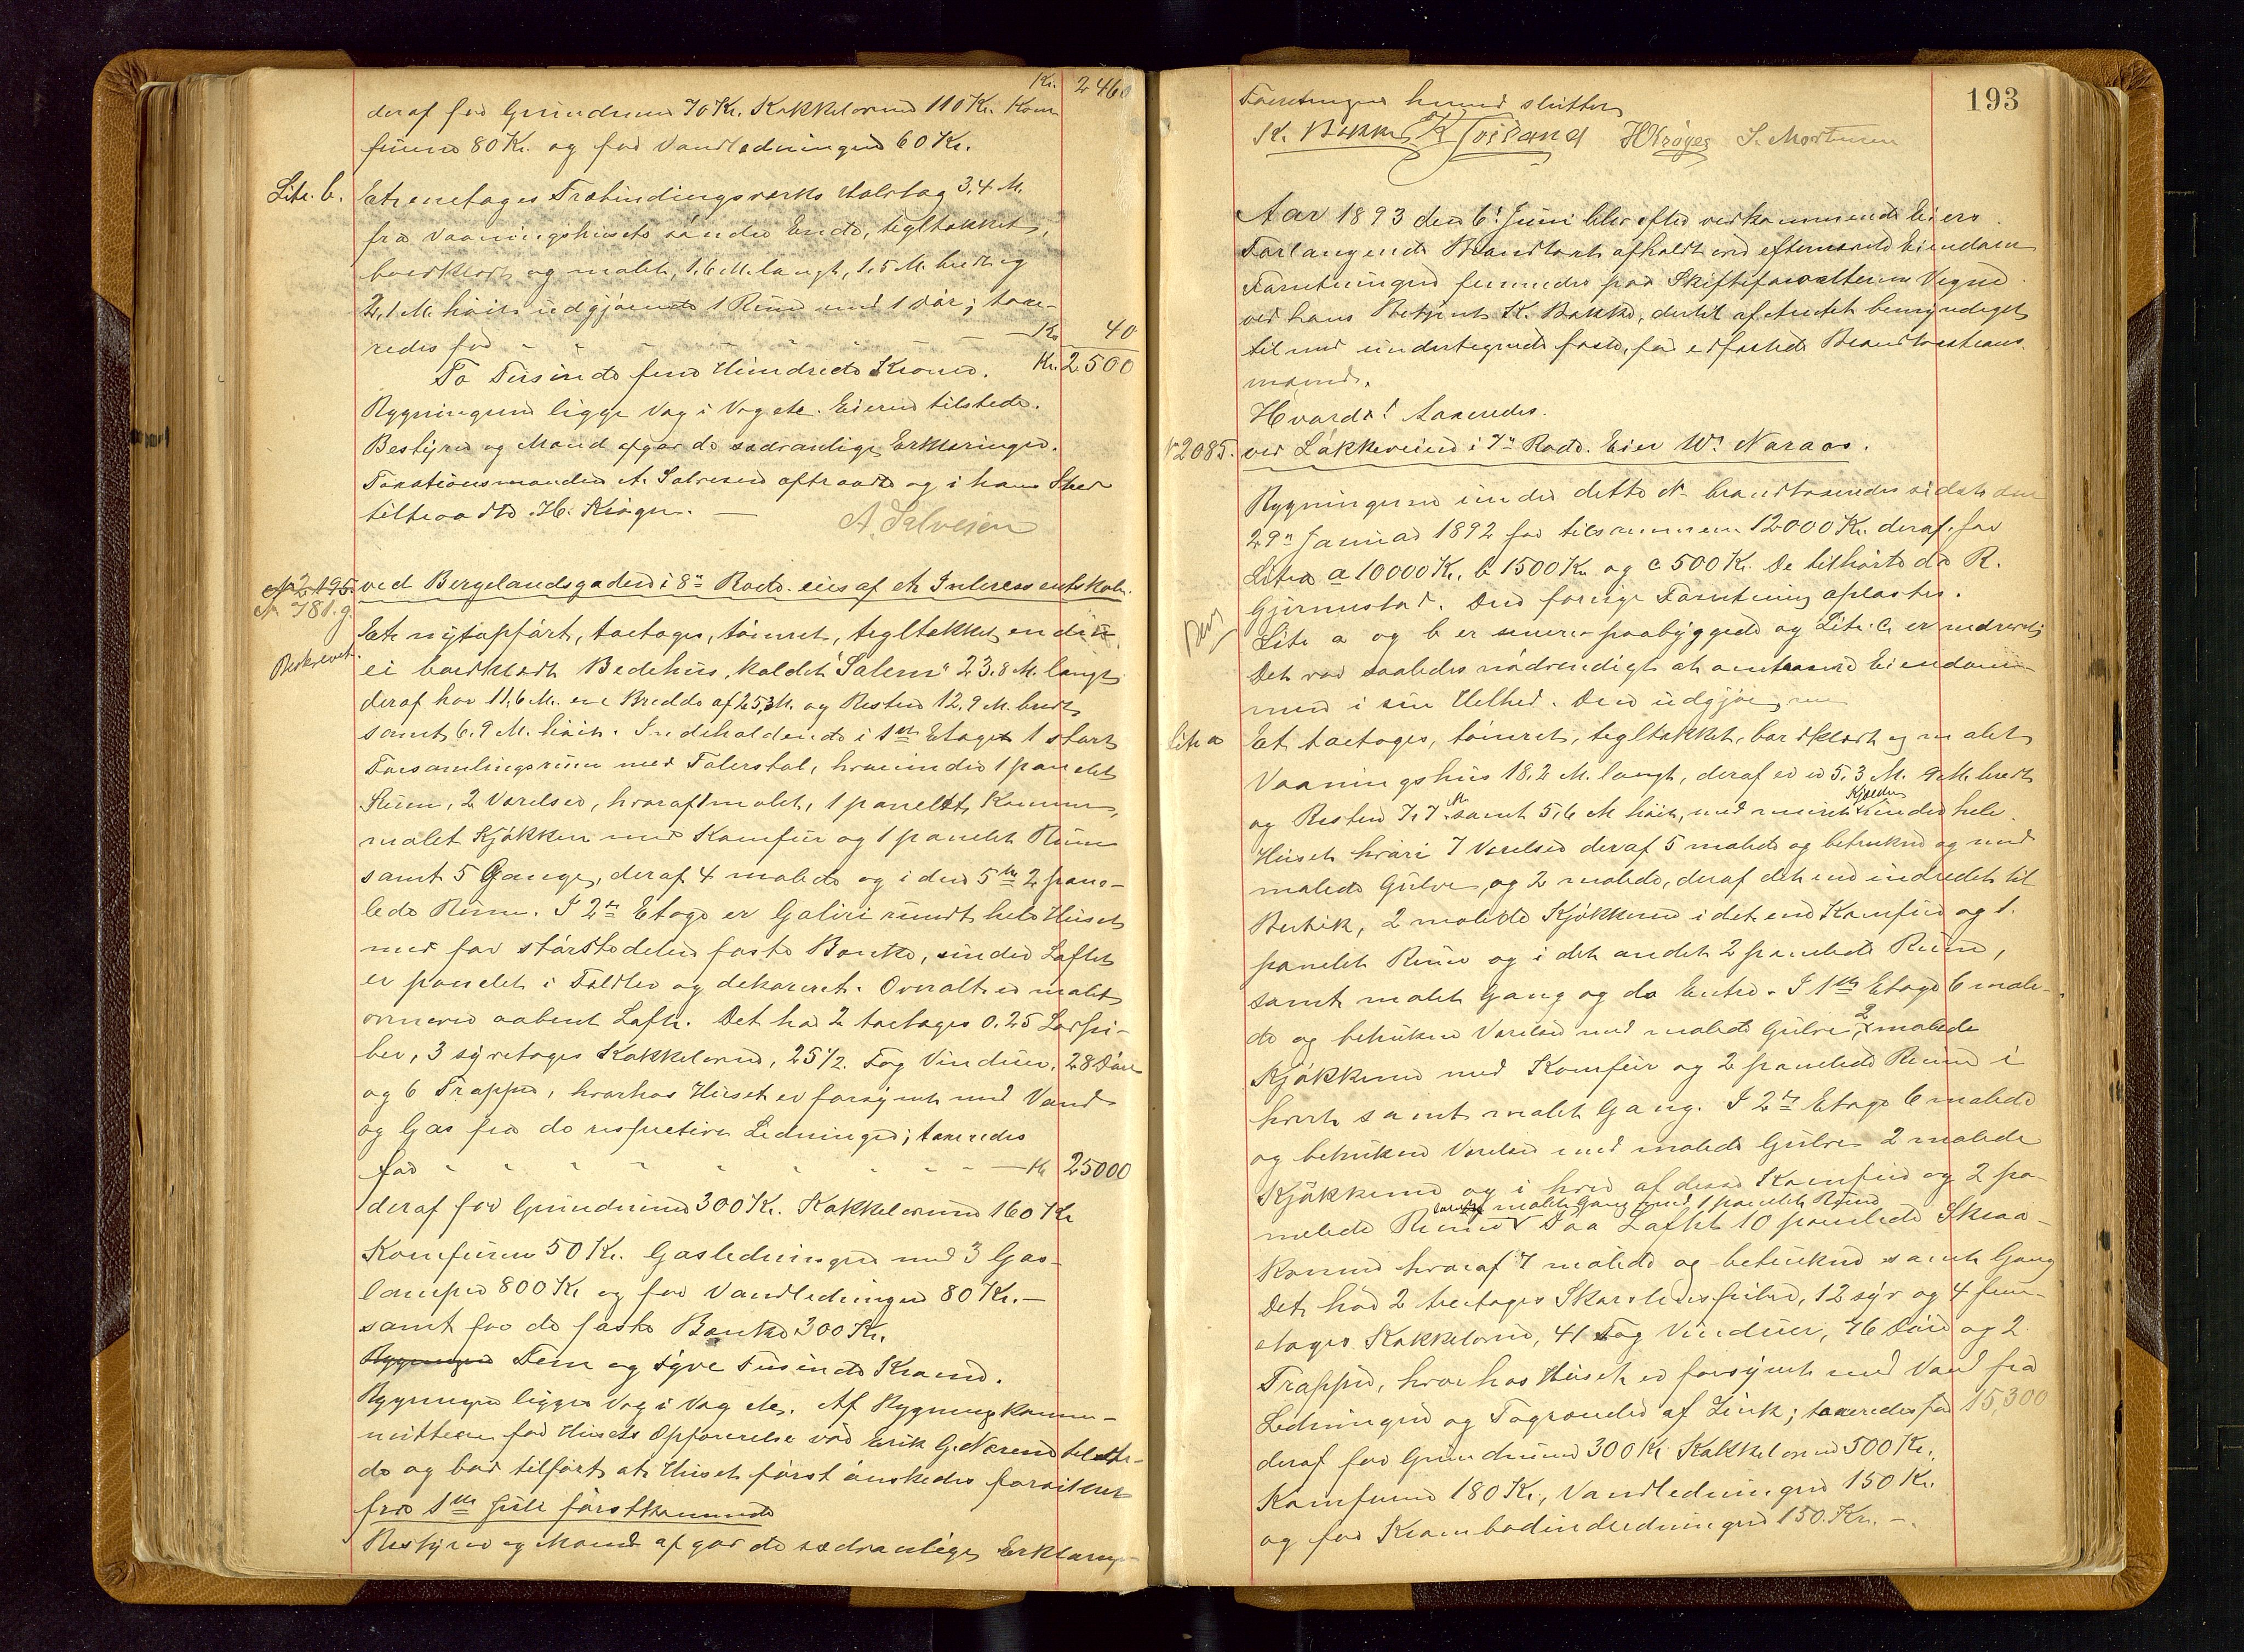 Kr. 2460
deraf for Grundmuren 70 Kr. Kakkelovne 110 Kr. Kom
furene 80 Kr. og for Vandledningen 60 Kr.
Litr. b. Et enetages Træbindingsværks Halvtag 3,4 M.
fra Vaaningshusets søndre Ende, tegltækket,
bordklædt og malet, 1,6 M. langt, 1,5 M. bredt og
2,1 M. høit udgjørende 1 Rum med 1 Dør; taxe-
redes for - - - - Kr. 40
To Tusinde fem Hundrede Kroner. Kr. 2500
Bygningerne ligge Væg i Væg etc. Eieren tilstede.
Bestyrer og Mænd afgav de sædvanlige Erklæringer.
Taxationsmanden A. Salvesen aftraadte og i hans Sted
tiltraadte H. Krøger. —
A. Salvesen
No 2195. ved Bergelandsgaden i 8de Rode. eies af et Interessentskab.
No 781.g.
Beskrevet.
Et nytopført, toetages, tømret, tegltækket endnu
ei bordklædt Bedehus, kaldet "Salem" 23,8 M. langt
deraf har 11,6 M. en Bredde af 25,3 M. og Resten 12,9 M. bredt
samt 6,9 M. høit. Indeholdende i 1ste Etage 1 stort
Forsamlingsrum med Talerstol, hvorunder 1 panelet
Rum, 2 Værelser, hvoraf 1 malet, 1 panelet Kammer,
malet Kjøkken med Komfur og 1 panelet Rum
samt 5 Gange, deraf 4 malede og i den 5te 2 pane-
lede Rum. I 2den Etage er Galleri rundt hele Huset
med for størstedelen faste Bænke, under Loftet
er panelet i Felter og dekoreret. Overalt er malet
ovenover aabent Loft. Det har 2 toetages 0.25 Lørpi-
ber, 3 syvetages Kakkelovne, 25 1/2 Fag Vinduer, 28 Døre
og 6 Trapper, hvorhos Huset er forsynet med Vand
og Gas fra de respective Ledninger; taxeredes
for - - - - Kr 25000
deraf for Grundmuren 300 Kr. Kakkelovnene 160 Kr
Komfuren 50 Kr. Gasledningen med 3 Gas-
lamper 800 Kr og for Vandledningen 80 Kr. —
samt for de faste Bænke 300 Kr.
Bygningen Fem og tyve Tusinde Kroner.
Bygningen ligger Væg i Væg etc. Af Bygningskom-
mitteen for Husets Opførelse var Erik G. Næsend tilste-
de og bad tilført at Huset først ønskedes forsikret
fra 1ste Juli førstkommende
Bestyrer og Mænd afgav de sædvanlige Erklæring-
193
Forretningen hermed sluttet
K. Bakke E K Goiland H Krøger S. Mortensen
Aar 1893 den 6te Juni blev efter vedkommende Eiers
Forlangende Brandtaxt afholdt over efternævnte Eiendom
Forretningen fremmedes paa Skifteforvalterens Vegne
ved hans Betjent K. Bakke, dertil af Amtet bemyndiget
tillige med undertegnede faste, for edfæstede Brandtaxtions
mænd.
Hvorda! Taxeredes.
No 2085. ved Løkkeveien i 7de Rode. Eier W. Naraas.
Bygningerne under dette No brandtaxeredes sidst den
29de Januar 1892 for tilsammen 12000 Kr. deraf for
Litra a 10000 Kr. b 1500 Kr og c 500 Kr. De tilhørte da R.
Gjermestad. Den forrige Forretning oplæstes.
Litr a og b er senere paabyggede og Litr. c. er nedrevet
Det var saaledes nødvendigt at omtaxere Eiendom-
men i sin Helhed. Den udgjør nu
Litr a Et toetages, tømret, tegltækket, bordklædt og malet
Vaaningshus 18,2 M. langt, deraf er 5,3 M. 9 M. bredt
og Resten 7,7 M samt 5,6 M høit, med muret Kjælder under hele
Huset hvori 7 Værelser deraf 5 malede og betrukne og med
malede Gulve, og 2 malede, deraf det ene indredet til
Butik, 2 malede Kjøkkener i det ene Komfur og 1.
panelet Rum og i det andet 2 panelede Rum,
samt malet Gang og do Entre. I 1ste Etage 6 male-
de og betrukne Værelser med malede Gulve, 2 malede
Kjøkkener med Komfur og 2 panelede Rum i
hvert samt malet Gang. I 2den Etage 6 malede
og betrukne Værelser med malede Gulve 2 malede
Kjøkkener og i hver af disse Komfur og 2 pa-
nelede Rum samt malet Gang med 1 panelet Rum Paa Loftet 10 panelede Skraa-
kamre hvoraf 7 malede og betrukne samt Gang
Det har 2 treetages Skorstenspiber, 12 syv og 4 fem-
etages Kakkelovne, 41 Fag Vinduer, 46 Døre og 2
Trapper, hvorhos Huset er forsynet med Vand fra
Ledningen og Tagrender af Zink; taxeredes for 15,300
deraf for Grundmuren 300 Kr Kakkelovne 500 Kr.
Komfurene 180 Kr., Vandledningen 150 Kr.
og for Krambodindredningen 150 Kr. —